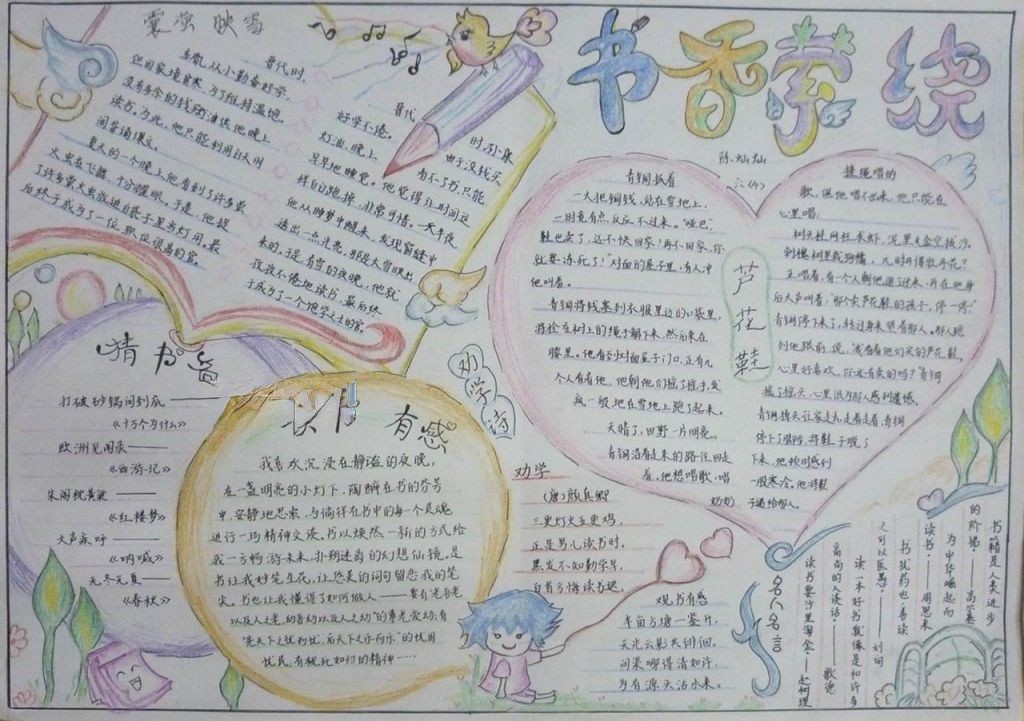 书香萦绕
陈灿灿
六(4)
囊萤映雪
晋代时,
车胤从小勤奋好学,
但家境贫寒,为了维持温饱,
没有多余的钱购油供他晚上
读书。为此,他只能利用白天时
间背诵课文。
夏天的一个晚上他看到了许多萤
火虫在飞舞,十分耀眼。于是,他捉
了许多萤火虫放进白袋子里当灯用。最
后终于成为了一位职位很高的官。
晋代
时,孙康
好学不倦。
由于没钱买
灯油,晚上
看不了书,只能
早早地睡觉。他觉得让时间这
样白白跑掉,非常可惜。一天半夜,
他从睡梦中醒来,发现窗缝中
透进一点光亮。那是大雪映出
来的。于是,有雪的夜晚,他就
孜孜不倦地读书,最后终
于成为了一个饱学之士的官。
芦花鞋
青铜抓着
一大把铜钱,站在雪地上,
一时竟有点反应不过来。“哑巴,
鞋也卖了,还不快回家!再不回家,你
就要冻死了!”对面的屋子里,有人冲
他叫着。
青铜将钱塞到衣服里边的口袋里,
将拴在树上的绳子解下来,然后束在
腰里。他看到对面屋子门口,正有几
个人看着他,他朝他们摇了摇手,发
疯一般地在雪地上跑了起来。
天晴了,田野一片明亮。
青铜沿着走来的路往回走
着。他想唱歌,唱
奶奶
搓绳唱的
歌,但他唱不出来,他只能在
心里唱:
树头挂网枉求虾,泥里无金空拔沙。
刺槐树里栽狗橘,几时开得牡丹花?
正唱着,有一个人朝他追了过来,并在他身
后大声叫着:“那个卖芦花鞋的孩子,停一停!”
青铜停下来了,转过身来望着那人。那人跑
到他跟前,说:“我看看他们买的芦花鞋,
心里好喜欢,你还有卖的吗?”青铜
摇了摇头,心里很为那人感到遗憾。
青铜掉头往家走去,走着走着,青铜
停下了脚步,将鞋子脱了
下来,他顿时感到
一股寒冷,他将鞋
子递给那人。
猜书名
打破砂锅问到底——
《十万个为什么》
欧洲见闻录——
《西游记》
朱阁栊黄粱——
《红楼梦》
大声疾呼——
《呐喊》
无冬无夏——
《春秋》
读书有感
我喜欢沉浸在静谧的夜晚,
在一盏明亮的小灯下,陶醉在书的芬芳
中,安静地思索,与徜徉在书中的每一个灵魂
进行一场精神交谈。书以焕然一新的方式给
我一方畅游未来、扑朔迷离的幻想仙镜,是
书让我妙笔生花,让悠美的词句留恋我的笔
尖。书也让我懂得了如何做人——要有“老吾老
以及人之老,幼吾幼以及人之幼”的尊老爱幼;有
“先天下之忧而忧,后天下之乐而乐”的忧国
忧民,有视死如归的精神……
劝学诗
劝学
(唐)颜真卿
三更灯火五更鸡,
正是男儿读书时,
黑发不知勤学早,
白首方悔读书迟。
观书有感
半亩方塘一鉴开,
天光云影共徘徊。
问渠哪得清如许,
为有源头活水来。
名人名言
书籍是人类进步
的阶梯。——高尔基
为中华崛起而
读书。——周恩来
书犹药也,善读
之可以医愚。——刘向
读一本好书就像是和许多
高尚的人谈话。——歌德
读书要沙里淘金——赵树理